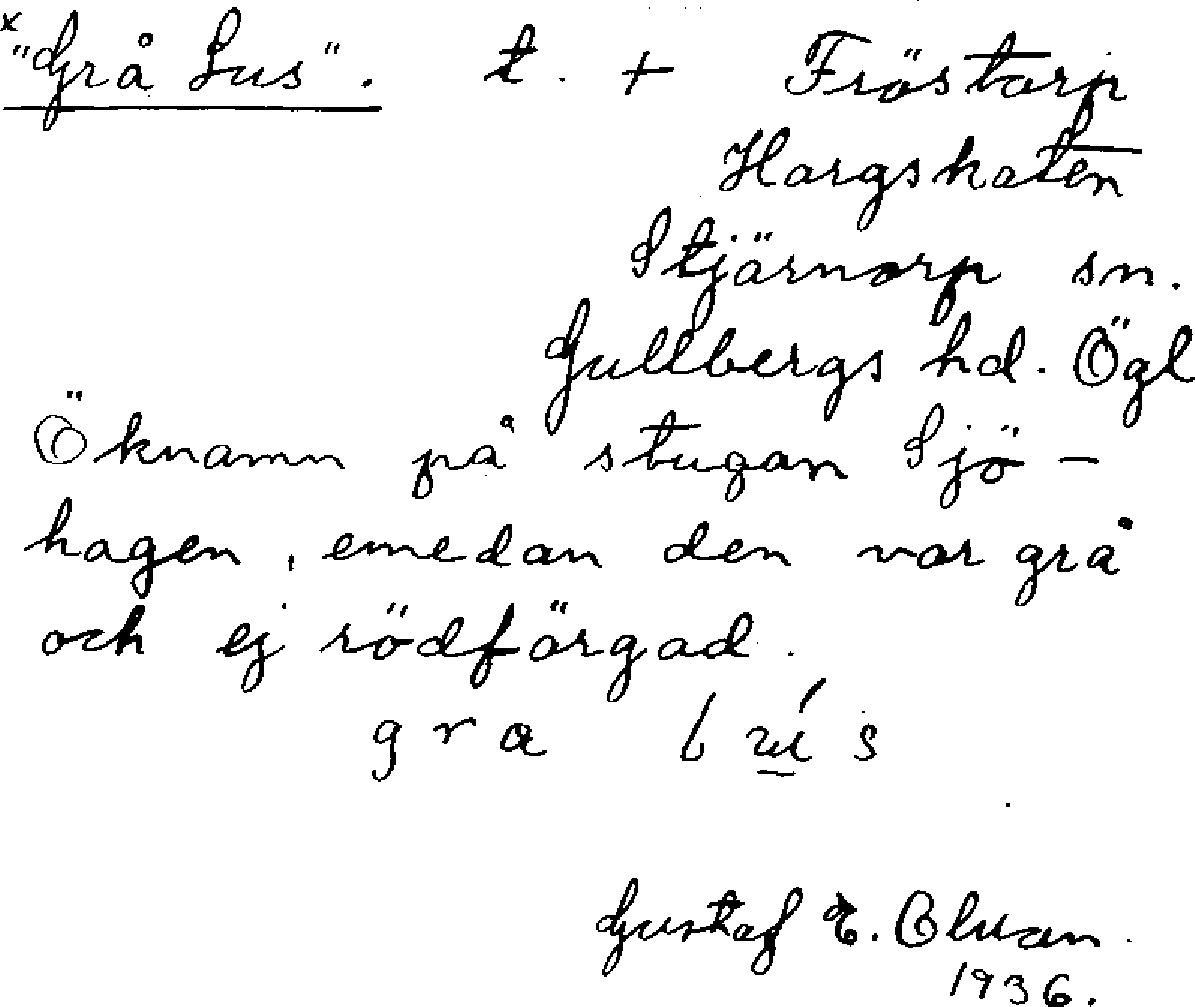 x "Grå Lus". t. + Fröstorp
Hargshaten
Stjärnorp sn.
Gullbergs hd. Ögl
Öknamn på stugan Sjö-
hagen, emedan den var grå
och ej rödfärgad.
gra
Gustaf E.
1936.